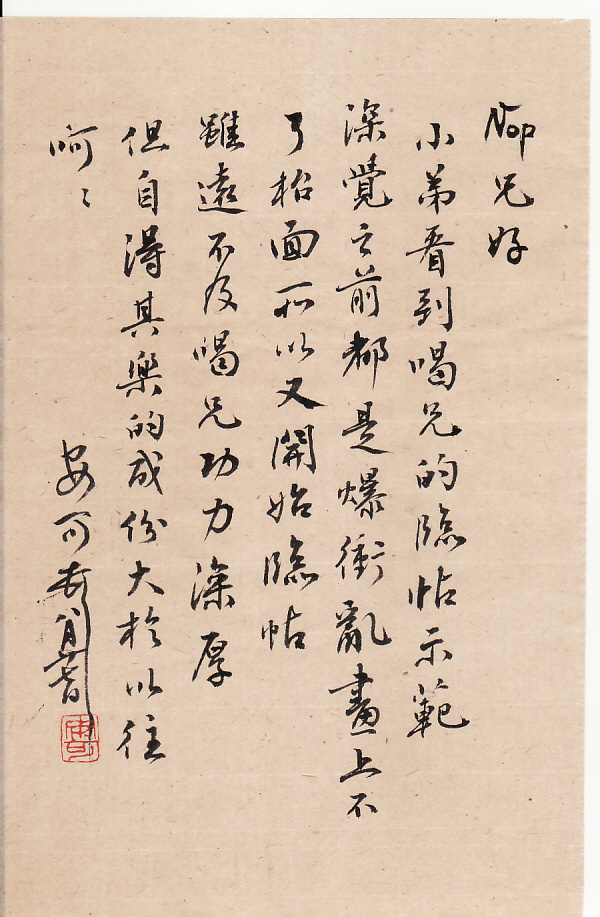 Nop兄好
小弟看到喝兄的臨帖示範
深覺之前都是爆衝亂畫上不
了枱面所以又開始臨帖
雖遠不及喝兄功力深厚
但自得其樂的成份大於以往
呵呵
安可